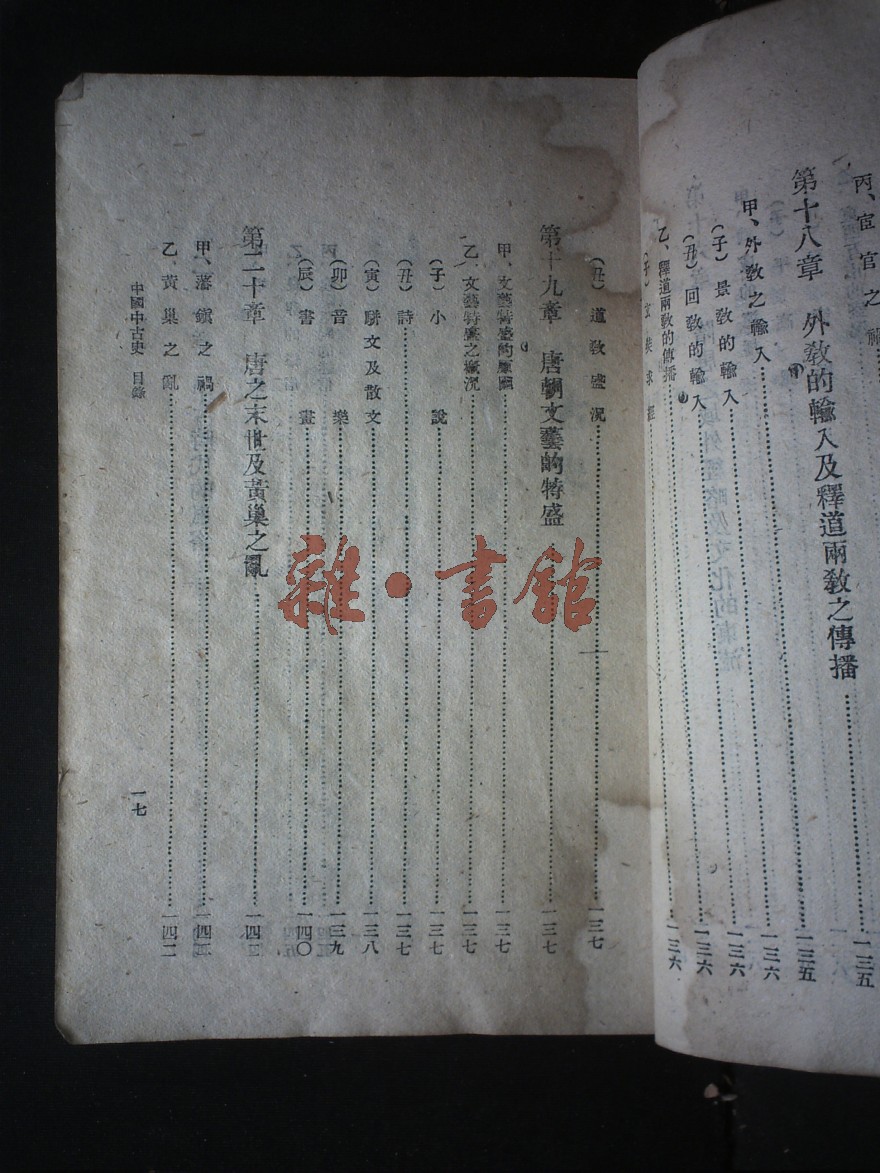 丙、宦官之禍……一三五
第十八章 外教的輸入及釋道兩教之傳播……一三五
甲、外教之輸入……一三六
(子)景教的輸入……一三六
(丑)回教的輸入……一三六
乙、釋道兩教的傳播……一三六
(子)玄奘求經
(丑)道教盛況……一三七
第十九章 唐朝文藝的特盛……一三七
甲、文藝特盛的原因……一三七
乙、文藝特盛之概況……一三七
(子)小說……一三七
(丑)詩……一三七
(寅)駢文及散文……一三八
(卯)音樂……一三九
(辰)書畫……一四〇
第二十章 唐之末世及黃巢之亂……一四二
甲、藩鎮之禍……一四二
乙、黃巢之亂……一四二
中國中古史 目錄
一七
雜·書館